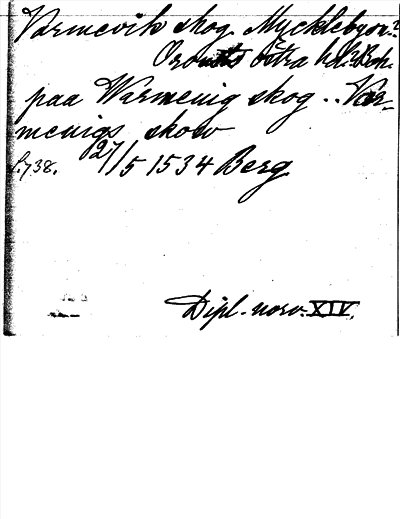 Varmevik skog. Myckleby sn?
Orousts östra hd? Boh.
paa Warmenig skog .. Var-
menigs skow
s. 738. 27/5 1534 Berg
Dipl. norv. XIV.